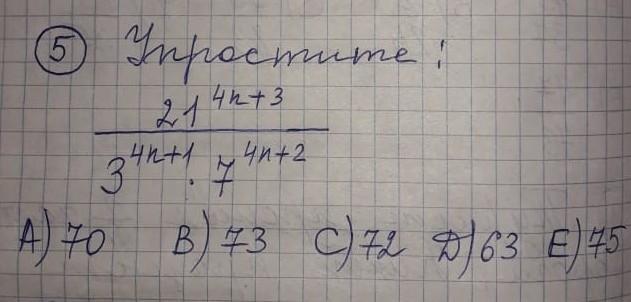 5 Упростите:
21^{4n+3}
3^{4n+1} · 7^{4n+2}
A) 70 B) 73 C) 72 D) 63 E) 75